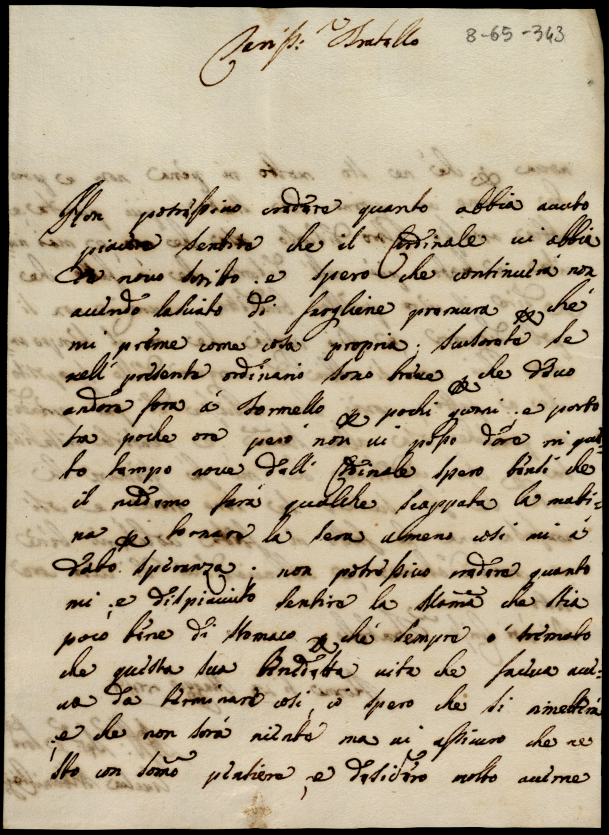 8-65-343
Cariss:mo Fratello
Non potressivo credere quanto abbia auuto
piacere sentire che il Cardinale ui abbia
di nouo scrito. e spero che continuerá non
auendo lasciato di fargliene premura che
mi preme come cosa propria. scuserete se
nell' presente ordinario sono breue che deuo
andare fora á Formello pochi giorni. e parto
tra poche ore peró non ui posso dare in que=
sto tempo noue dell' Cardinale spero bensí che
il medemo fará qualche scappata la mati=
na tornare la sera almeno cosi mi á
dato speranza; non potressivo credere quanto
mi .e dispiaciuto sentire la Mamã che stia
poco bene di stomaco ché sempre ó tremato
che questa sua benedetta uita che faceua aue=
ua da terminare cosi, ió spero che si rimetterá
.e che non sará niente ma ui assicuro che re=
sto con somo pensiere, e desidero molto auerne